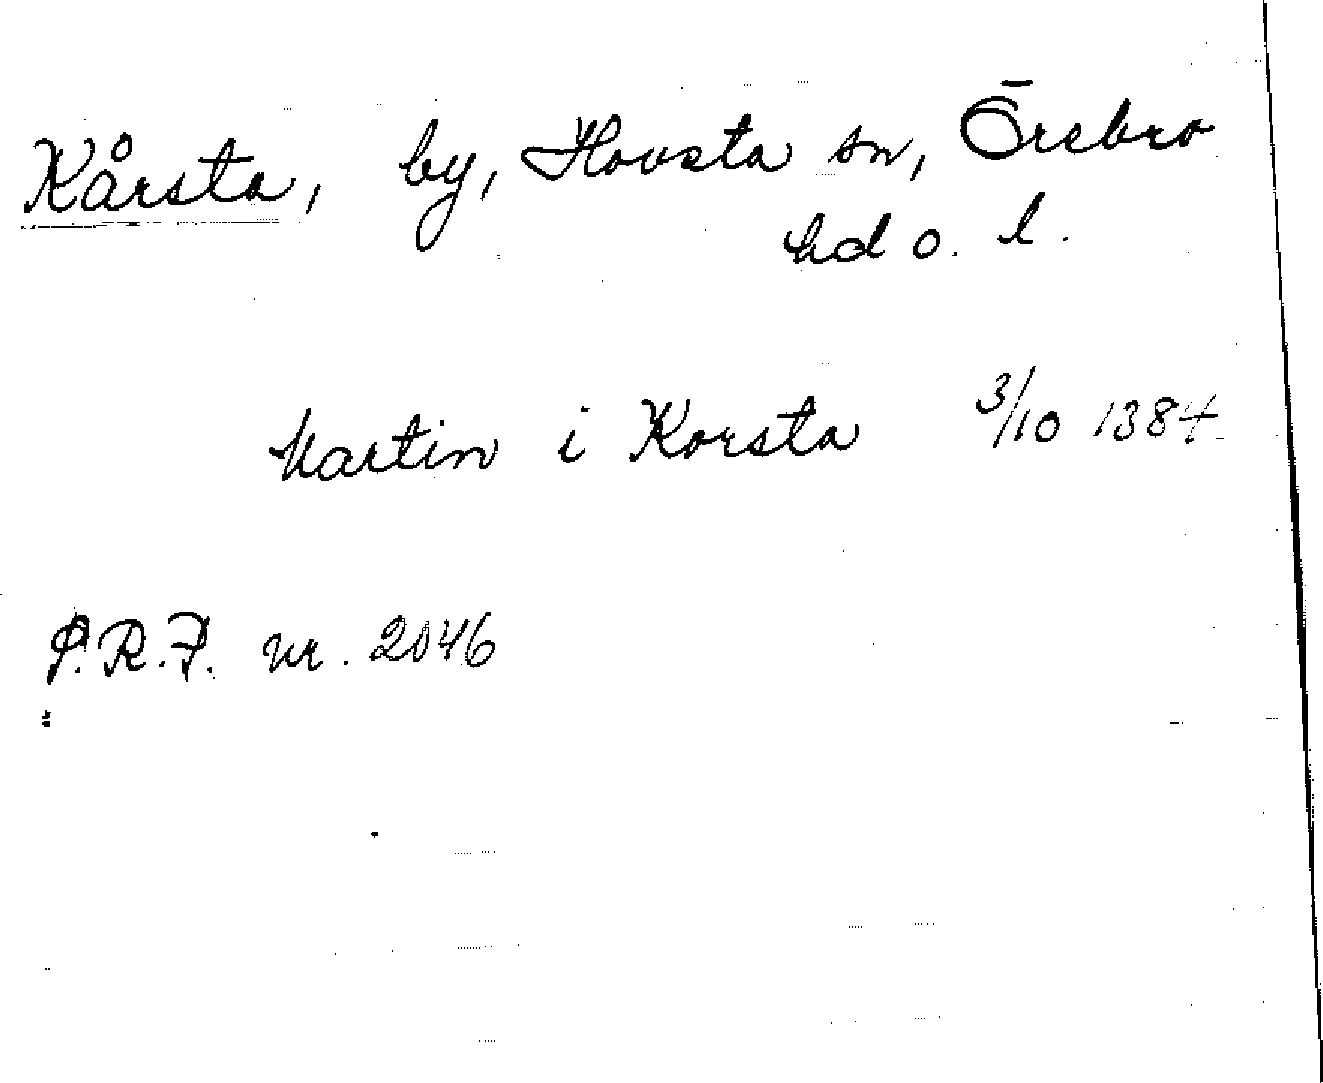 Kårsta, by, Hovsta sn, Örebro
hd o. l.
Martin i Korsta 3/10 1384
P.R.F. nr. 2046